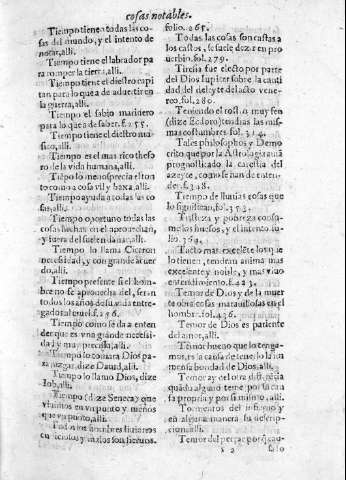 cosas notables.
Tiempo tiene todas las co-
sas del mundo, y el intento de
notar, alli.
Tiempo tiene el labrador pa
ra romper la tierra, alli.
Tiempo tiene el diestro capi
tan para lo que a de aduertir en
la guerra, alli.
Tiempo el sabio marinero
para lo que a de saber. f. 255.
Tiempo tiene el diestro mu-
sico, alli.
Tiempo es el mas rico theso
ro de la vida humana, alli.
Tiẽpo lo menosprecia el ton
to como a cosa vil y baxa, alli.
Tiempo ayuda a todas las co
sas, alli.
Tiempo oportuno todas las
cosas hechas en el aprouechan,
y fuera del suelen dañar, alli.
Tiempo lo llama Ciceron
necessidad, y con grande razon
alli.
Tiempo presente si el hom-
bre no se aprouecha del, seran
todos los años de su vida entre
gados al cruel. f. 256.
Tiempo como se da a enten
der que es vna grande necessi-
dad y muy precisa, alli.
Tiempo lo tomara Dios pa-
ra juzgar, dize Dauid, alli.
Tiempo lo llamo Dios, dize
Iob, alli.
Tiempo (dize Seneca) que
viuimos en vn punto y menos
que vn punto, alli.
Todos los hombres
folio. 265.
Todas las cosas son castas a
los castos, se suele dezir en pro
uerbio, fol. 279.
Tiresia fue electo por parte
del Dios Iupiter sobre la canti
dad del deleyte del acto vene-
reo, fol. 280.
Teniendo el rostro muy feu
(dize Ecdoro) tendras las mis-
mas costumbres. fol. 314.
Tales philosophos y Demo
crito que por la Astrologia auiã
prognosticado la carestia del
azeyte, como se han de enten-
der. f. 348.
Tiempo de lluuias cosas que
lo significan, fol. 353.
Tristeza y pobreza consu-
me los huesos, y el intento, fo-
lio. 364.
Tacto mas excelẽte los que
lo tienen, tendran anima mas
excelente y noble, y mas viuo
entendimiento. f. 423.
Temor de Dios y de la muer
te obra cosas marauillosas en el
hombre. fol. 436.
Temor de Dios es pariente
del amor, alli.
Temor bueno que lo tenga-
mos, es la causa de tenerlo la mis
ma bondad de Dios, alli.
Temor ay del otra
quado alguno teme por su cau
sa propria y por si mismo, alli.
Tormentos del infierno y
en alguna manera su descrip-
cion, alli.